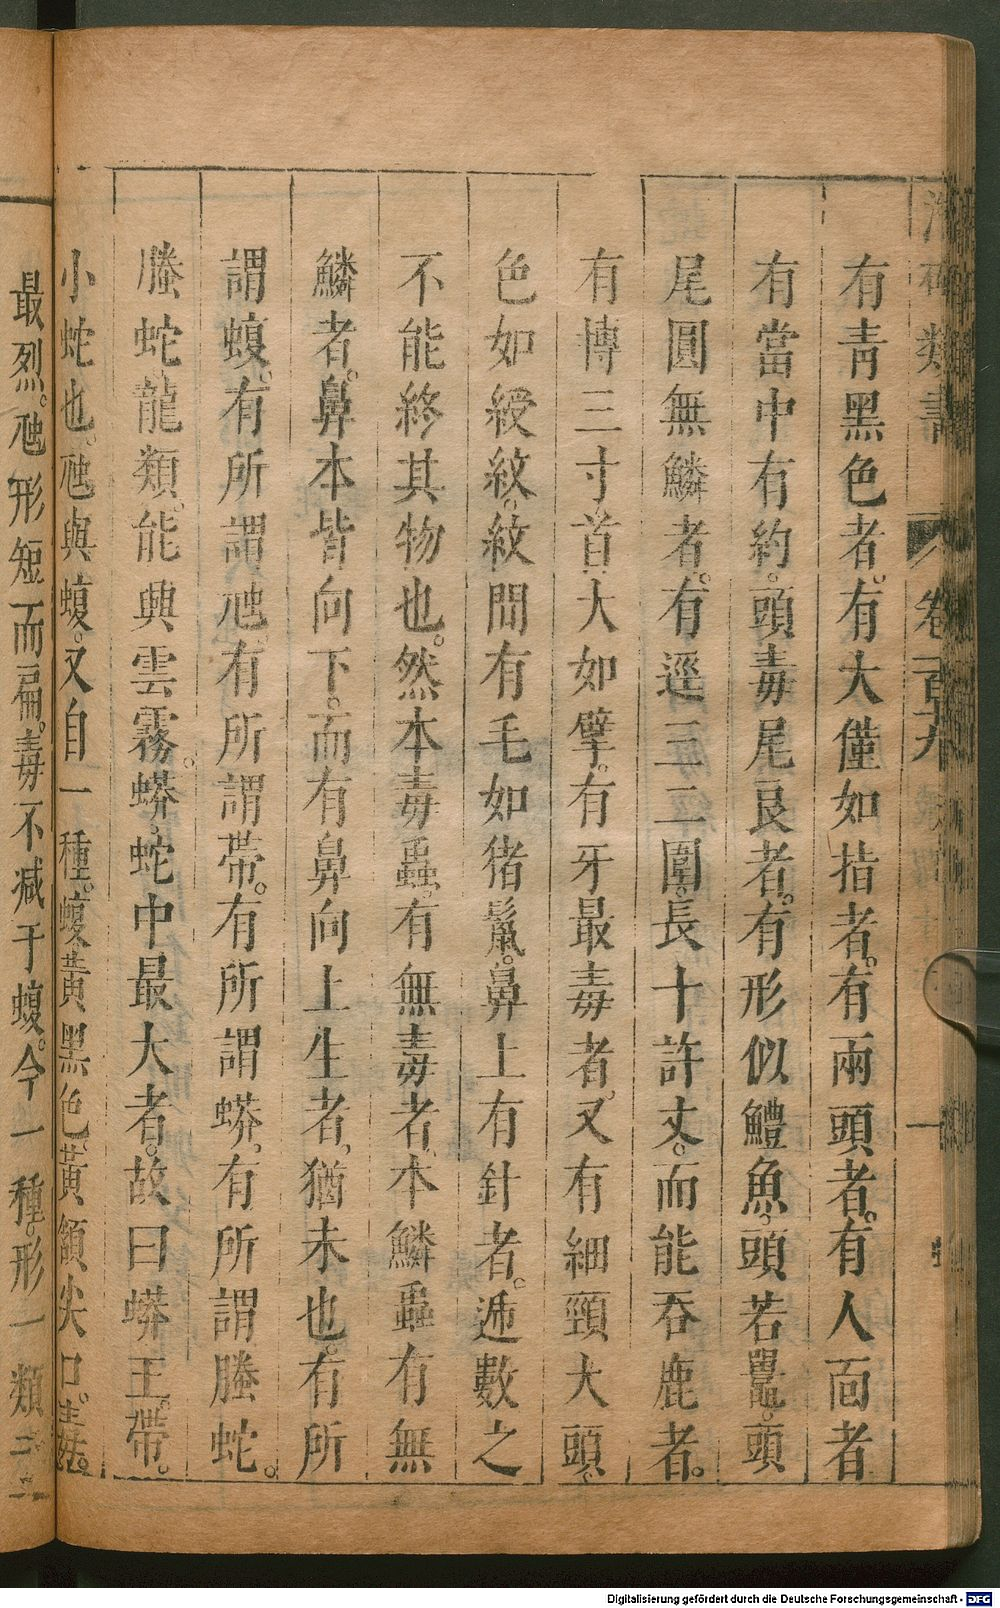 類書 卷一百九 一
有青黑色者。有大僅如指者。有兩頭者。有人面者
有當中有約。頭毒尾良者。有形似鱧魚。頭若鼉。頭
尾圓無鱗者。有逕三二圍。長十許丈。而能吞鹿者。
有博三寸首大如擘。有牙最毒者。又有細頸大頭、
色如綬紋。紋間有毛如猪鬣。鼻上有針者。遞數之
不能終其物也。然本毒蟲。有無毒者、本鱗蟲有無
鱗者。鼻本皆向下。而有鼻向上生者。猶未也。有所
謂蝮。有所謂虺有所謂帶。有所謂蟒。有所謂螣蛇。
螣蛇龍類。能興雲霧。蟒。蛇中最大者。故曰蟒王。帶。
小蛇也。虺與蝮。又自一種。蝮黃黑色。黃頷尖口。毒
最烈。虺形短而扁。毒不减于蝮。今一種。形一類
Digitalisierung gefördert durch die Deutsche Forschungsgemeinschaft - DFG